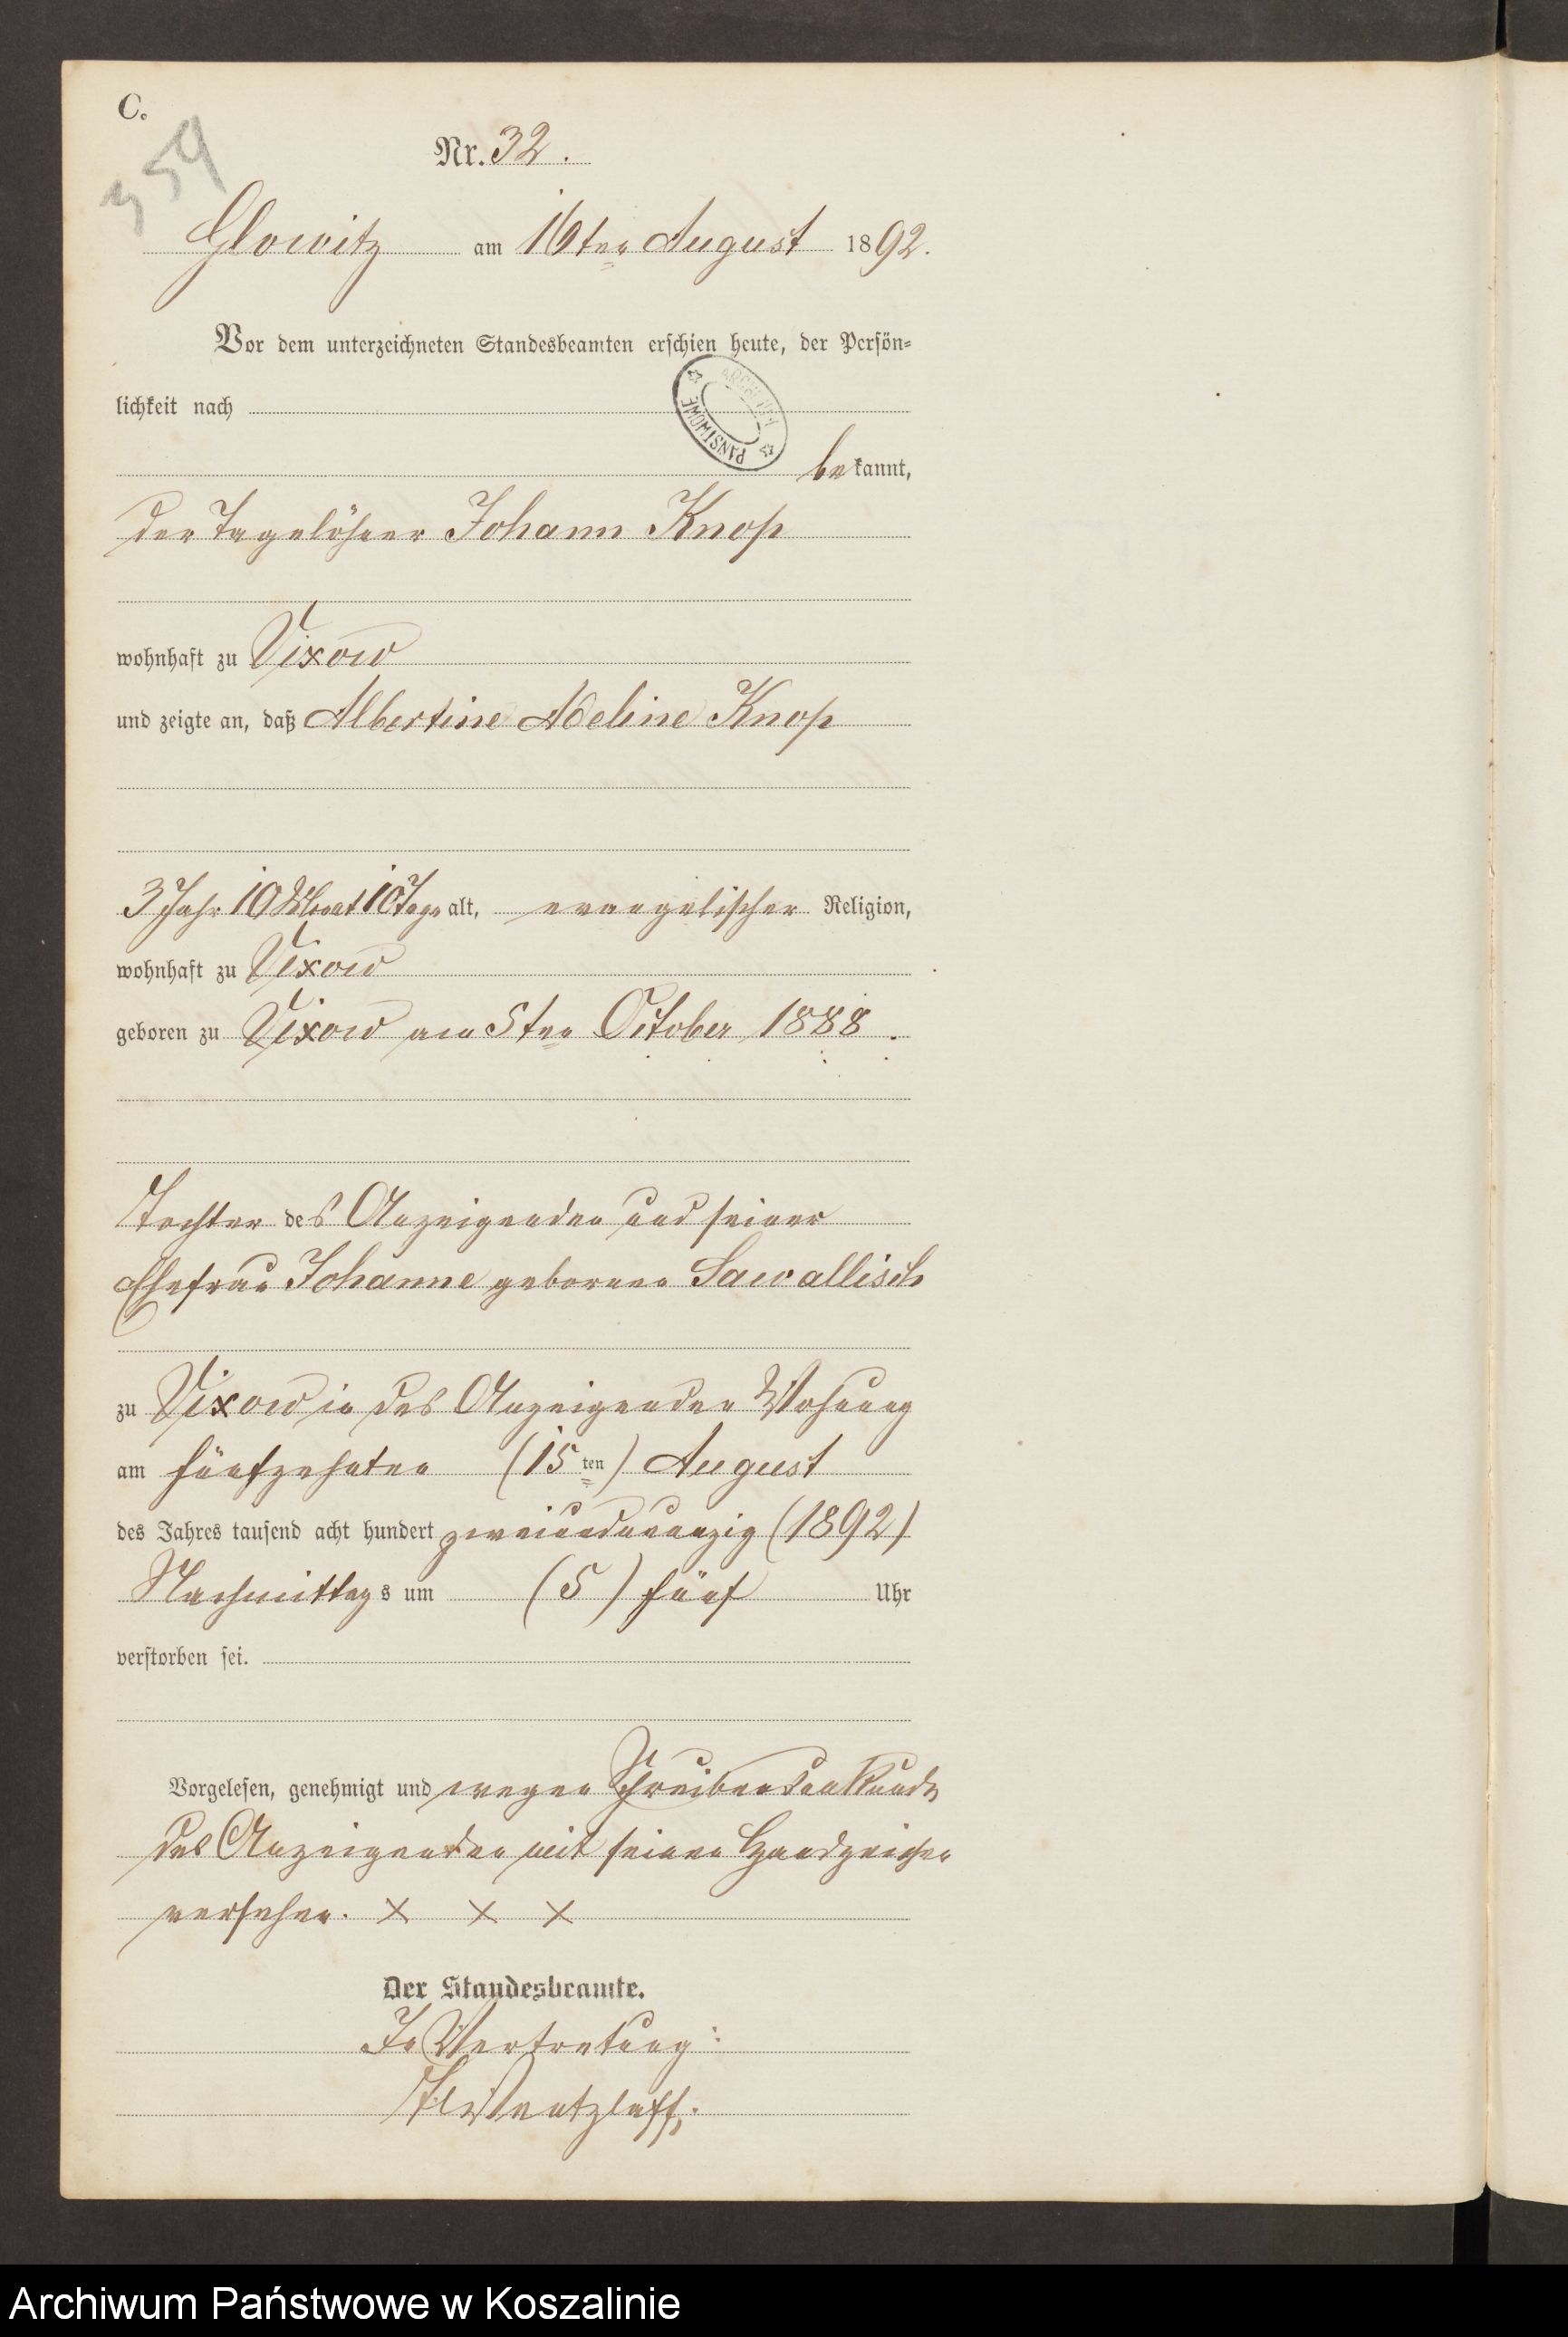 C.
359
Nr. 32.
Glowitz am 16ten August 1892.
Vor dem unterzeichneten Standesbeamten erschien heute, der Persön-
lichkeit nach
ARCHIWUM PAŃSTWOWE
bekannt,
der Tagelöhner Johann Knop
wohnhaft zu Vixow
und zeigte an, daß Albertine Adeline Knop
3 Jahr 10 Monat 10 Tage alt, evangelischer Religion,
wohnhaft zu Vixow
geboren zu Vixow am 5ten October 1888.
Tochter des Anzeigenden und seiner
Ehefrau Johanne geborenen Sawallisch
zu Vixow in des Anzeigenden Wohnung
am fünfzehnten (15ten) August
des Jahres tausend acht hundert zweiundneunzig (1892)
Nachmittags um (5) fünf Uhr
verstorben sei.
Vorgelesen, genehmigt und wegen Schreibensunkunde
des Anzeigenden mit seinen Handzeichen
versehen. X X X
Der Standesbeamte.
In Vertretung:
Wentzlaff.
Archiwum Państwowe w Koszalinie